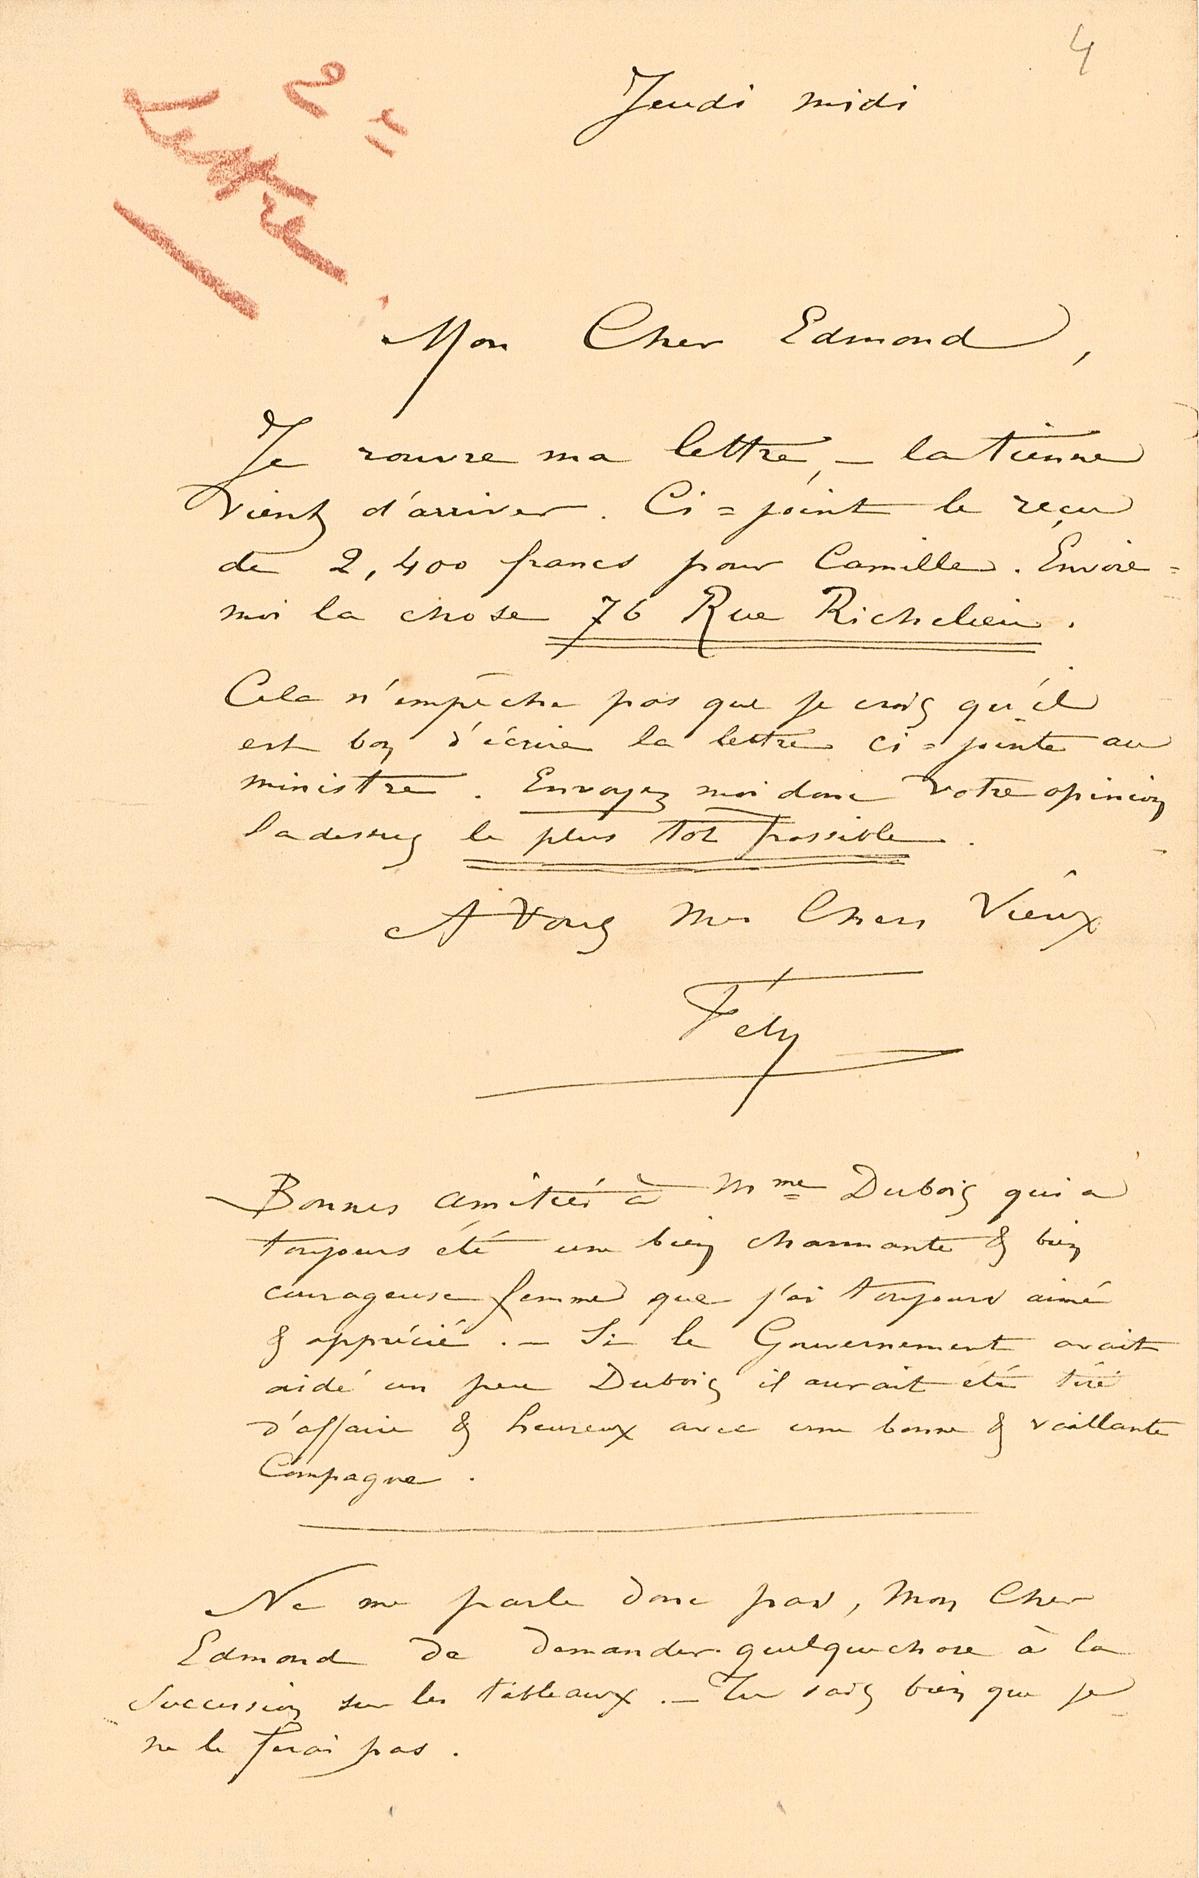 4
2e
Lettre
Jeudi midi
Mon Cher Edmond,
Je rouvre ma lettre, – la tienne
vient d'arriver. Ci=joint le reçu
de 2,400 francs pour Camille. Envoie=
moi la chose 76 Rue Richelieu.
Cela n'empêche pas que je crois qu'il
est bon d'écrire la lettre ci=jointe au
ministre. Envoyez moi donc votre opinion
ladessus le plus tot possible.
A Vous Mes Chers Vieux
Fély
Bonnes amitiés à Mme Dubois qui a
toujours été une bien charmante & bien
courageuse femme que j'ai toujours aimé
& apprécié. – Si le Gouvernement avait
aidé un peu Dubois il aurait été tiré
d'affaire & heureux avec une bonne & vaillante
Compagne.
Ne me parle donc pas, Mon Cher
Edmond de demander quelquechose à la
Succession sur les tableaux. – Tu sais bien que je
ne le ferai pas.